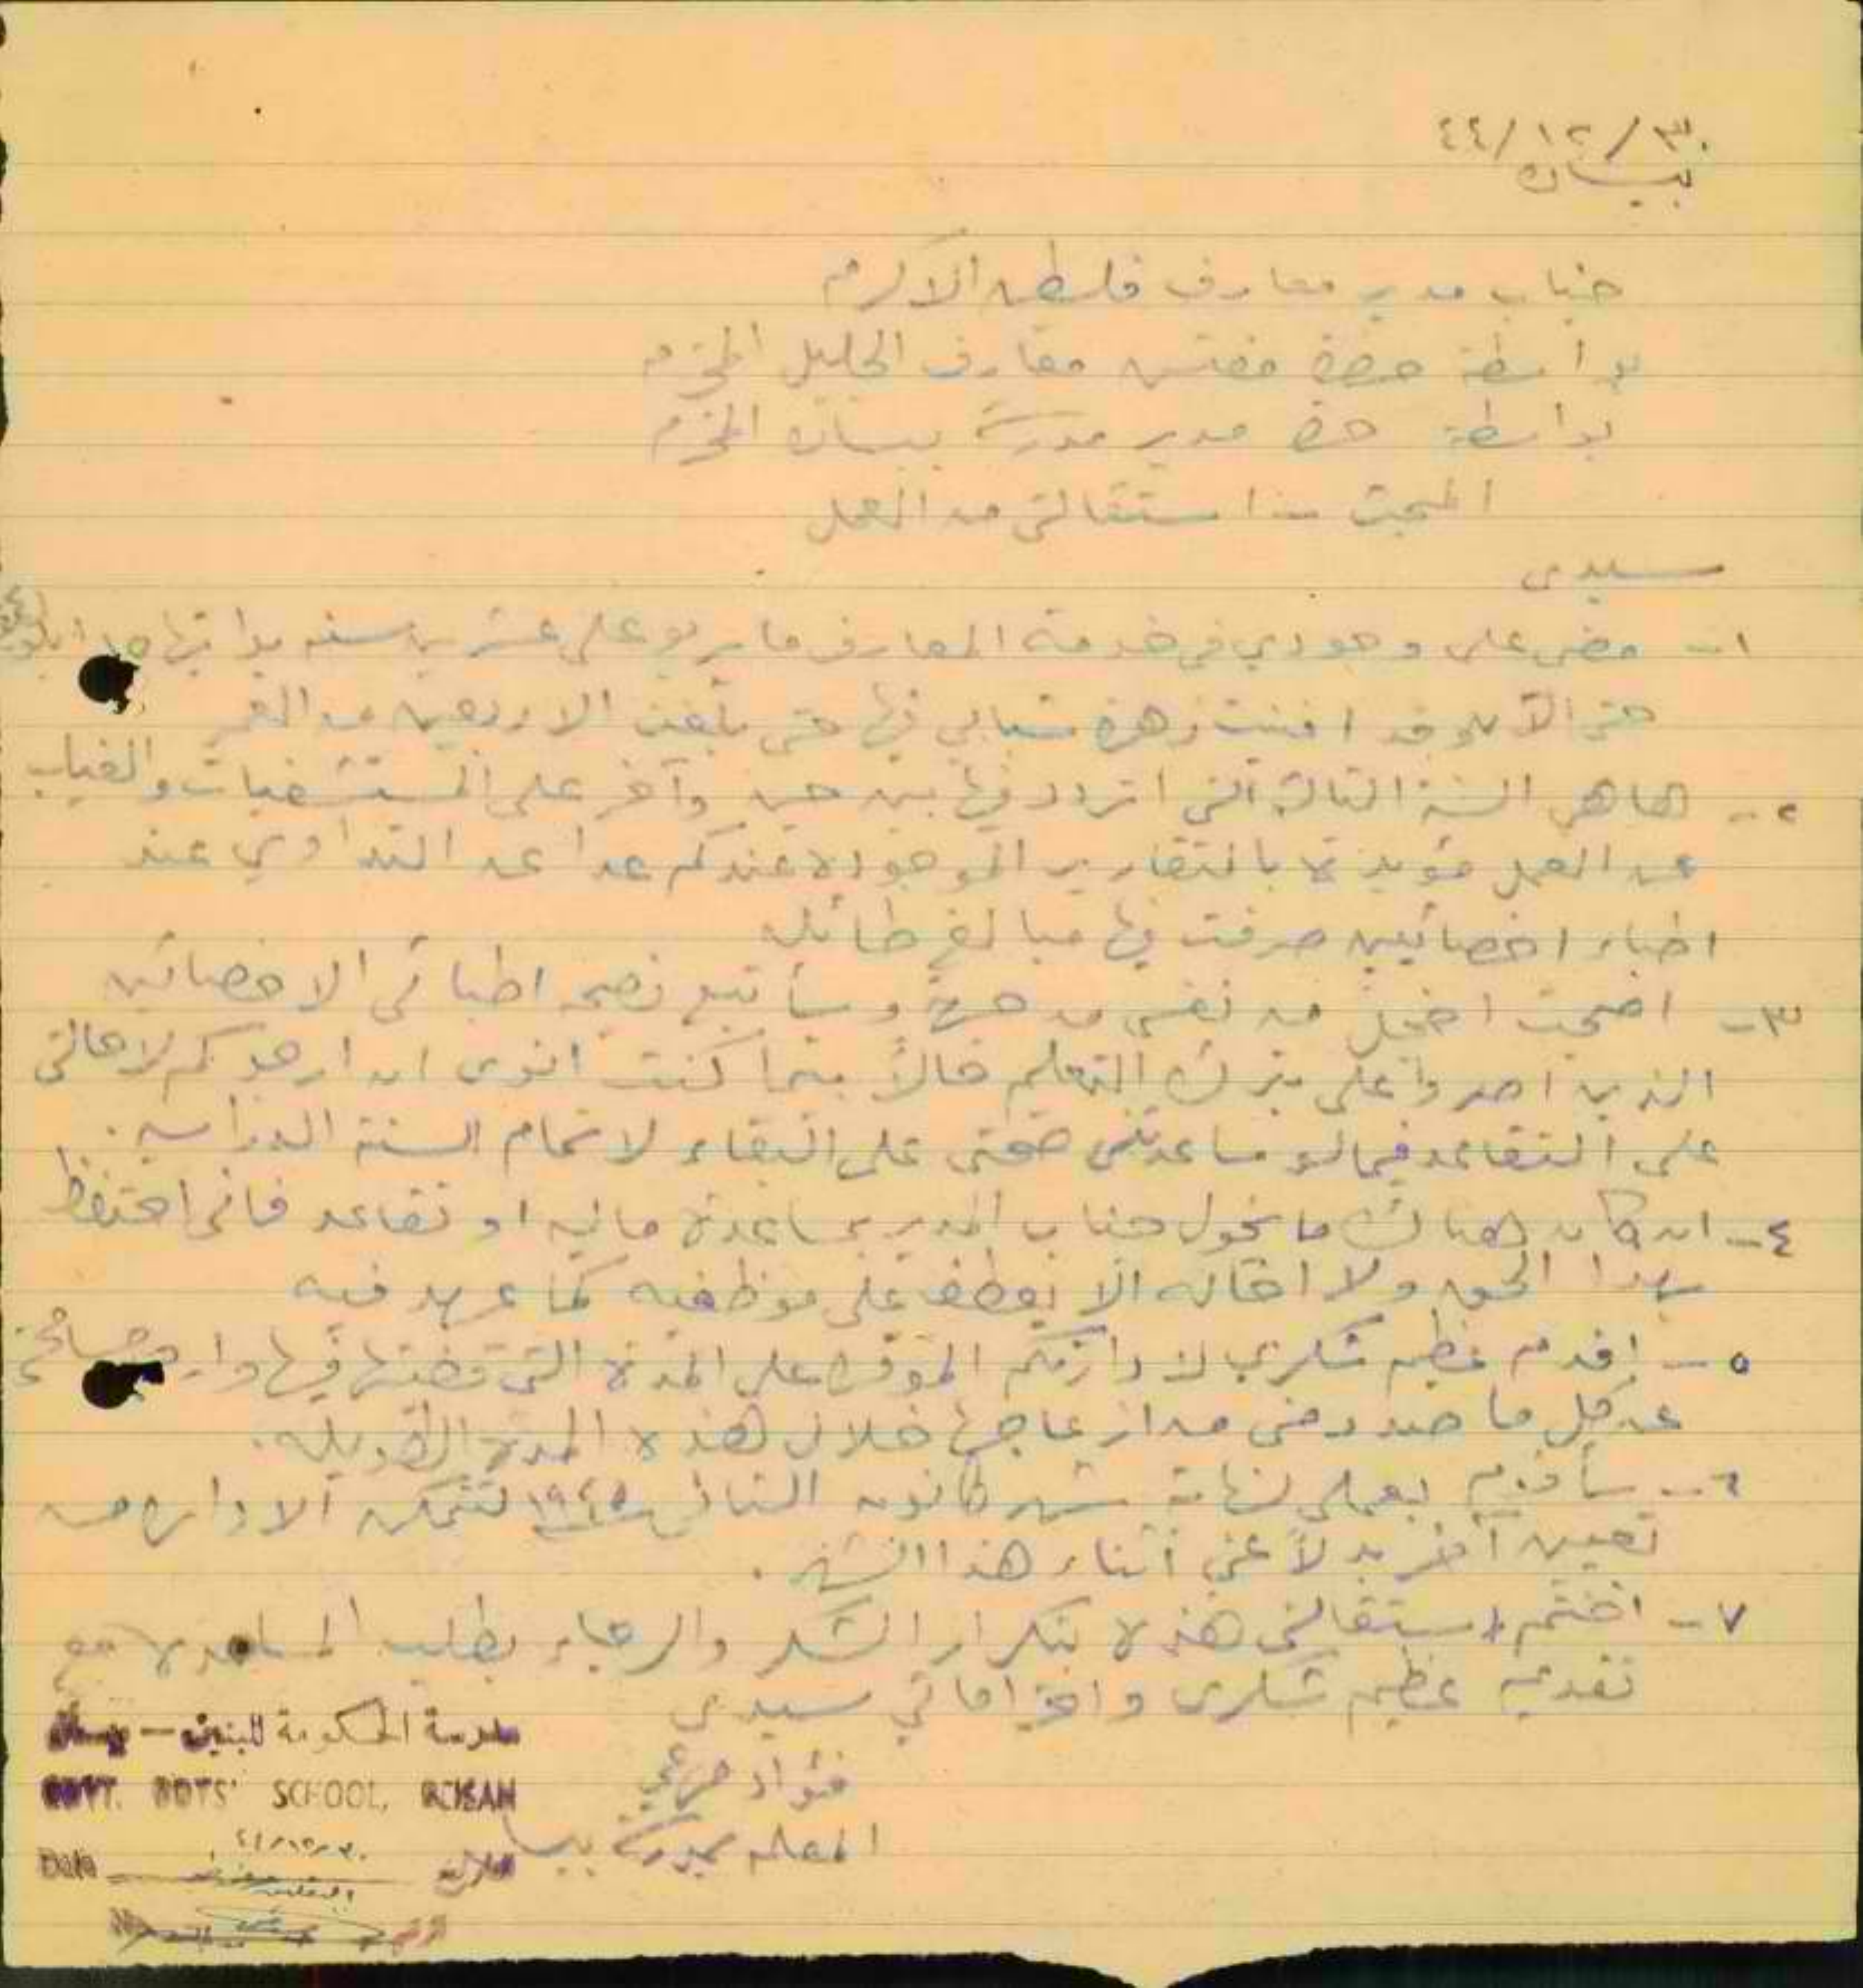 ٤٤/١٢/٣٠
بيسان
جناب مدير معارف فلسطين الاكرم
بواسطة حضرة مفتش معارف الجليل المحترم
بواسطة حضرة مدير مدرسة بيسان المحترم
المبحث :- استقالتي من العمل
سيدي
١- مضى على وجودي في خدمة المعارف ما يربو على عشرين سنه بدايتها من
حتى الآن وقد افنيت زهرة شبابي فيها حتى بلغت الاربعين من العمر
٢- هاهي السنة الثالثة التي اتردد فيها بين حين وآخر على المستشفيات والغياب
عن العمل مؤيدة بالتقارير الموجودة عندكم عدا عن التداوي عند
اطباء اخصائيين صرفت فيها مبالغ طائله
٣- اصبحت اخجل من نفسي من صحتي وسأتبع نصيحة اطبائي الاخصائين
الذين اصروا على بترك التعليم حالاً بينما كنت انوي ان ارجوكم لاحالتي
على التقاعد فيما لو ساعدتني صحتي على البقاء لاتمام السنة الدراسيه .
٤- ان كان هناك ما يخول جناب المدير بمساعدة ماليه او تقاعد فاني احتفظ
بهذا الحق ولا اخاله الا يعطف على موظفيه كما عهد فيه
٥- اقدم عظيم شكري لادارتكم الموقره على المدة التي قضيتها فيها وارجو
عن كل ما صدر مني من ازعاجها خلال هذه المدة الطويله .
٦- سأقوم بعملي لنهاية شهر كانون الثاني ١٩٤٥ لتتمكن الاداره من
تعيين آخر بدلاً عني اثناء هذا الشهر .
٧- اختتم استقالتي هذه بتكرار الشكر والرجاء بطلب المساعدة مع
تقديم عظيم شكري واحتراماتي سيدي
فؤاد مرعي
المعلم بمدرسة بيسان
مدرسة الحكومة للبنين - بيسان
GOVT. BOYS' SCHOOL, BEISAN
٤٤/١٢/٣٠
Date التاريخ
الرقم